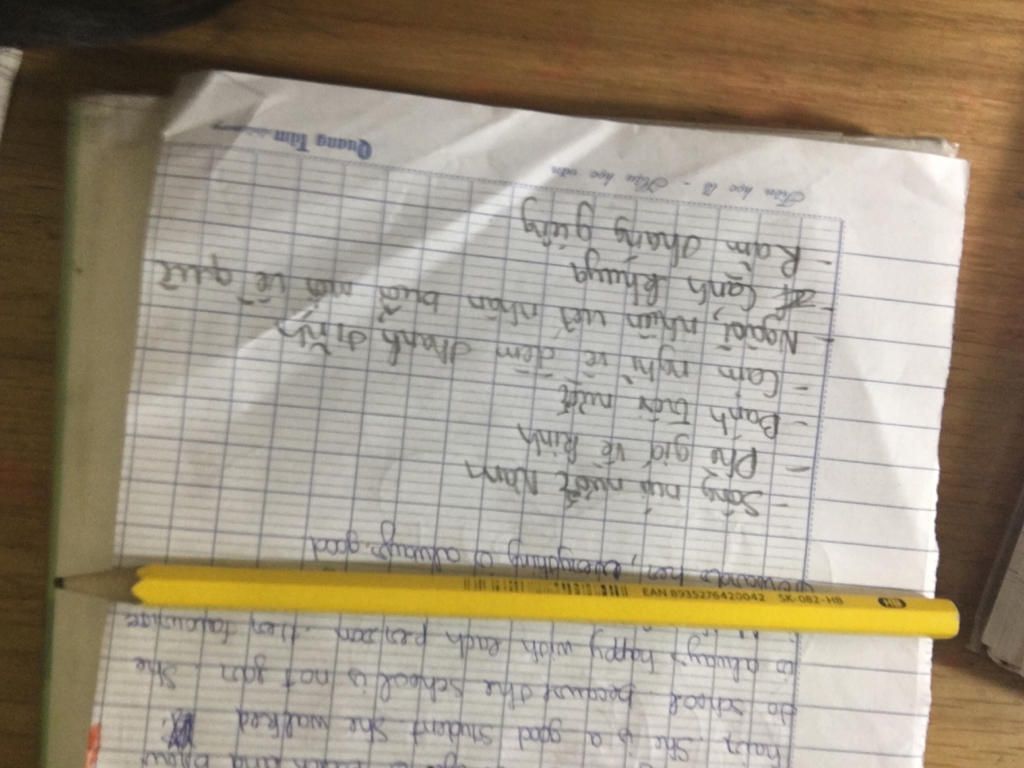 hair. She is a good student she walked
to school because the school is not gar. She
is always happy with each person. Her favourite
EAN 8935276420042 SK-082-HB HB
towards her, everything is always good
- Sông núi nước Nam
- Phò giá về kinh
- Bánh trôi nước
- Cảm nghĩ về đêm thanh tĩnh
- Ngẫu nhiên viết nhân buổi mới về quê
- Cảnh khuya
- Rằm tháng giêng
Tiên học lễ - Hậu học văn
Quang Tâm